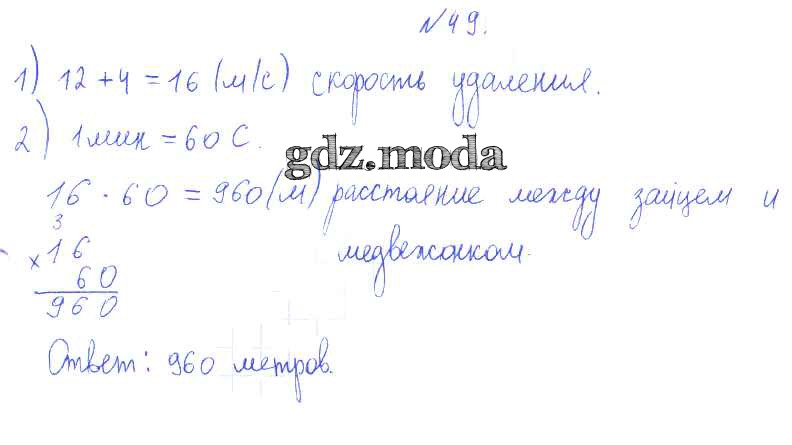 №49.
1) 12 + 4 = 16 (м/с) скорость удаления.
2) 1 мин = 60 с.
gdz.moda
16 · 60 = 960 (м) расстояние между зайцем и
медвежонком.
3
× 16
60
960
Ответ: 960 метров.